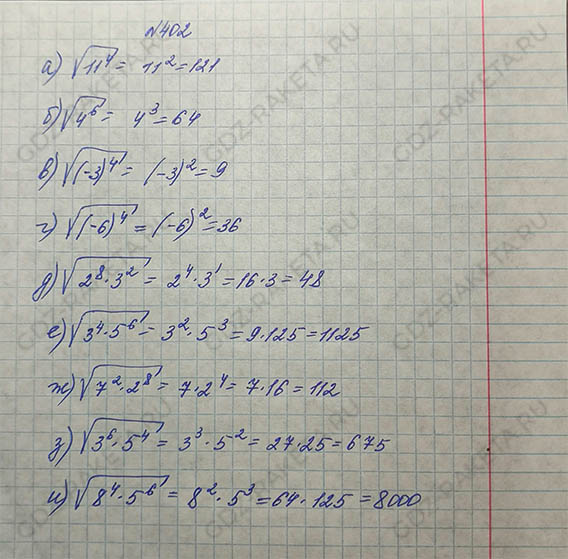 №402
а) √11⁴ = 11² = 121
б) √4⁶ = 4³ = 64
в) √(-3)⁴ = (-3)² = 9
г) √(-6)⁴ = (-6)² = 36
д) √2⁸·3² = 2⁴·3¹ = 16·3 = 48
е) √3⁴·5⁶ = 3²·5³ = 9·125 = 1125
ж) √7²·2⁸ = 7·2⁴ = 7·16 = 112
з) √3⁶·5⁴ = 3³·5² = 27·25 = 675
и) √8⁴·5⁶ = 8²·5³ = 64·125 = 8000
GDZ-RAKETA.RU
GDZ-RAKETA.RU
GDZ-RAKETA.RU
GDZ-RAKETA.RU
GDZ-RAKETA.RU
GDZ-RAKETA.RU
GDZ-RAKETA.RU
GDZ-RAKETA.RU
GDZ-RAKETA.RU